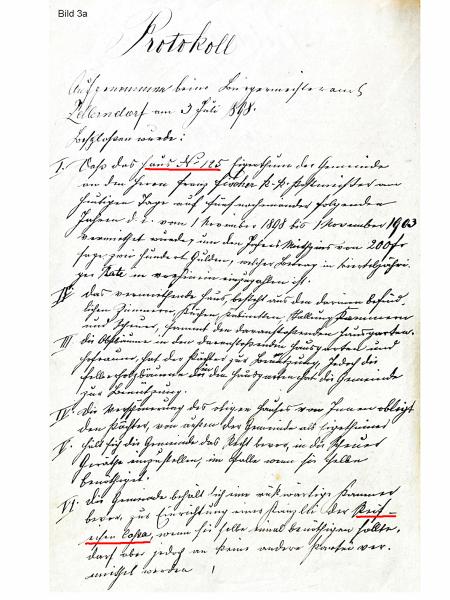 Bild 3a
Protokoll
Aufgenommen beim Bürgermeisteramte
Zellerndorf am 3 Juli 1898.
Beschlossen wurde:
I. Daß das Haus No 125 Eigenthum der Gemeinde
an den Herrn Franz Fischer k. k. Postmeister vom
heutigen Tage auf fünf nacheinander folgenden
Jahren d. i. vom 1 November 1898 bis 1 November 1903
vermiethet wurde, um den Jahres Miethzins von 200 fr
sage zwei hundert Gulden, welcher Betrag in vierteljähri-
ger Rate im vorhinein einzuzahlen ist.
II. Das vermiethende Haus, besteht aus den darinen befind-
lichen Zimmern, Küchen, Kabineten, Stallung Kammern
und Scheuer, sammt den daranstoßenden Hausgarten.
III. die Obstbäume in den daranstoßenden Hausgarten und
Hofraum, hat der Pächter zur Benützung, jedoch die
in den Hausgarten hat die Gemeinde
zur Benützung.
IV. Die des obigen Hauses von Innen obliegt
den Pächter, von außen der Gemeinde als Eigentheimer
V. hält sich die Gemeinde das Recht bevor, in die Scheuer
Geräthe einzustellen, im Falle wenn sie selbe
benöthiget.
VI. die Gemeinde behält sich eine rückwärtige Kammer
bevor, zur Einrichtung einer Kanzlei der Reif-
eisen Cassa, wenn sie selbe einmal benöthigen sollte,
darf aber jedoch an keine andere Partei ver-
miethet werden!